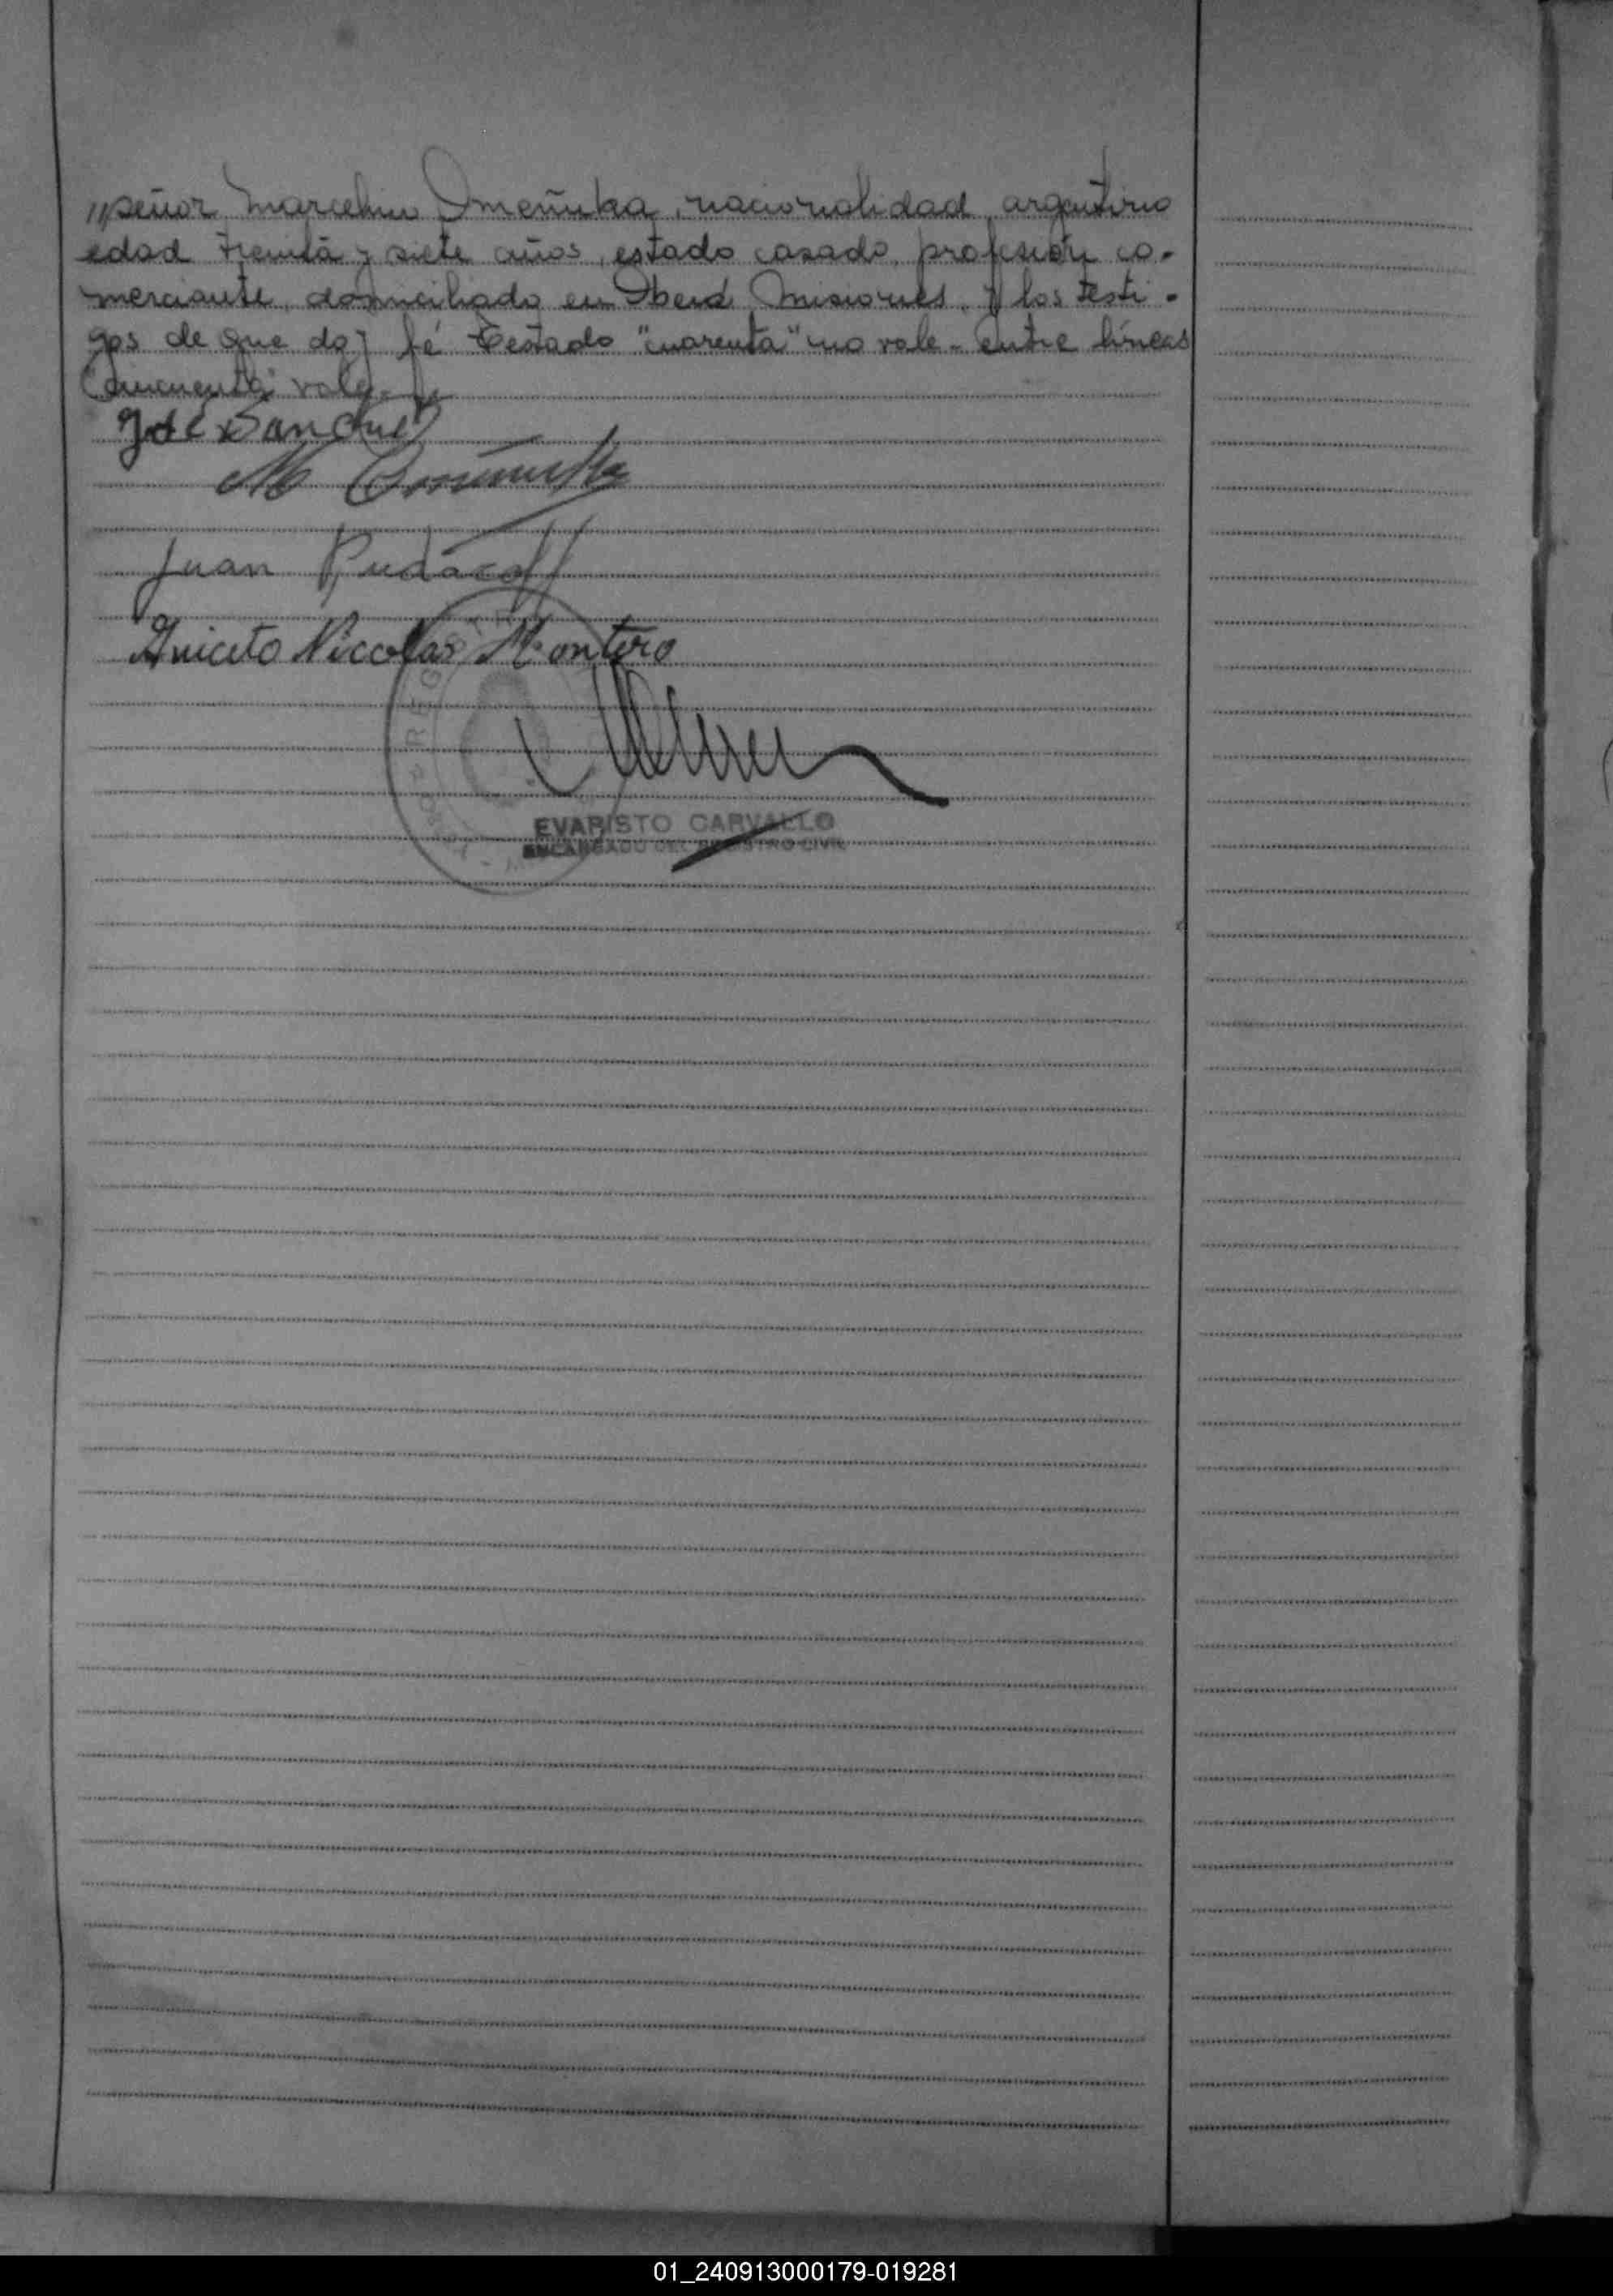 señor Marcelino Omeñuka, nacionalidad argentino
edad treinta y siete años, estado casado, profesión co-
merciante, domiciliado en Oberá Misiones. y los testi-
gos de que doy fé Testado "cuarenta" no vale - entre líneas
cincuenta vale.
José Sanchez
Juan
Aniceto Nicolas Montero
REGISTRO
EVARISTO CARVALLO
ENCARGADO DEL REGISTRO CIVIL
01_240913000179-019281